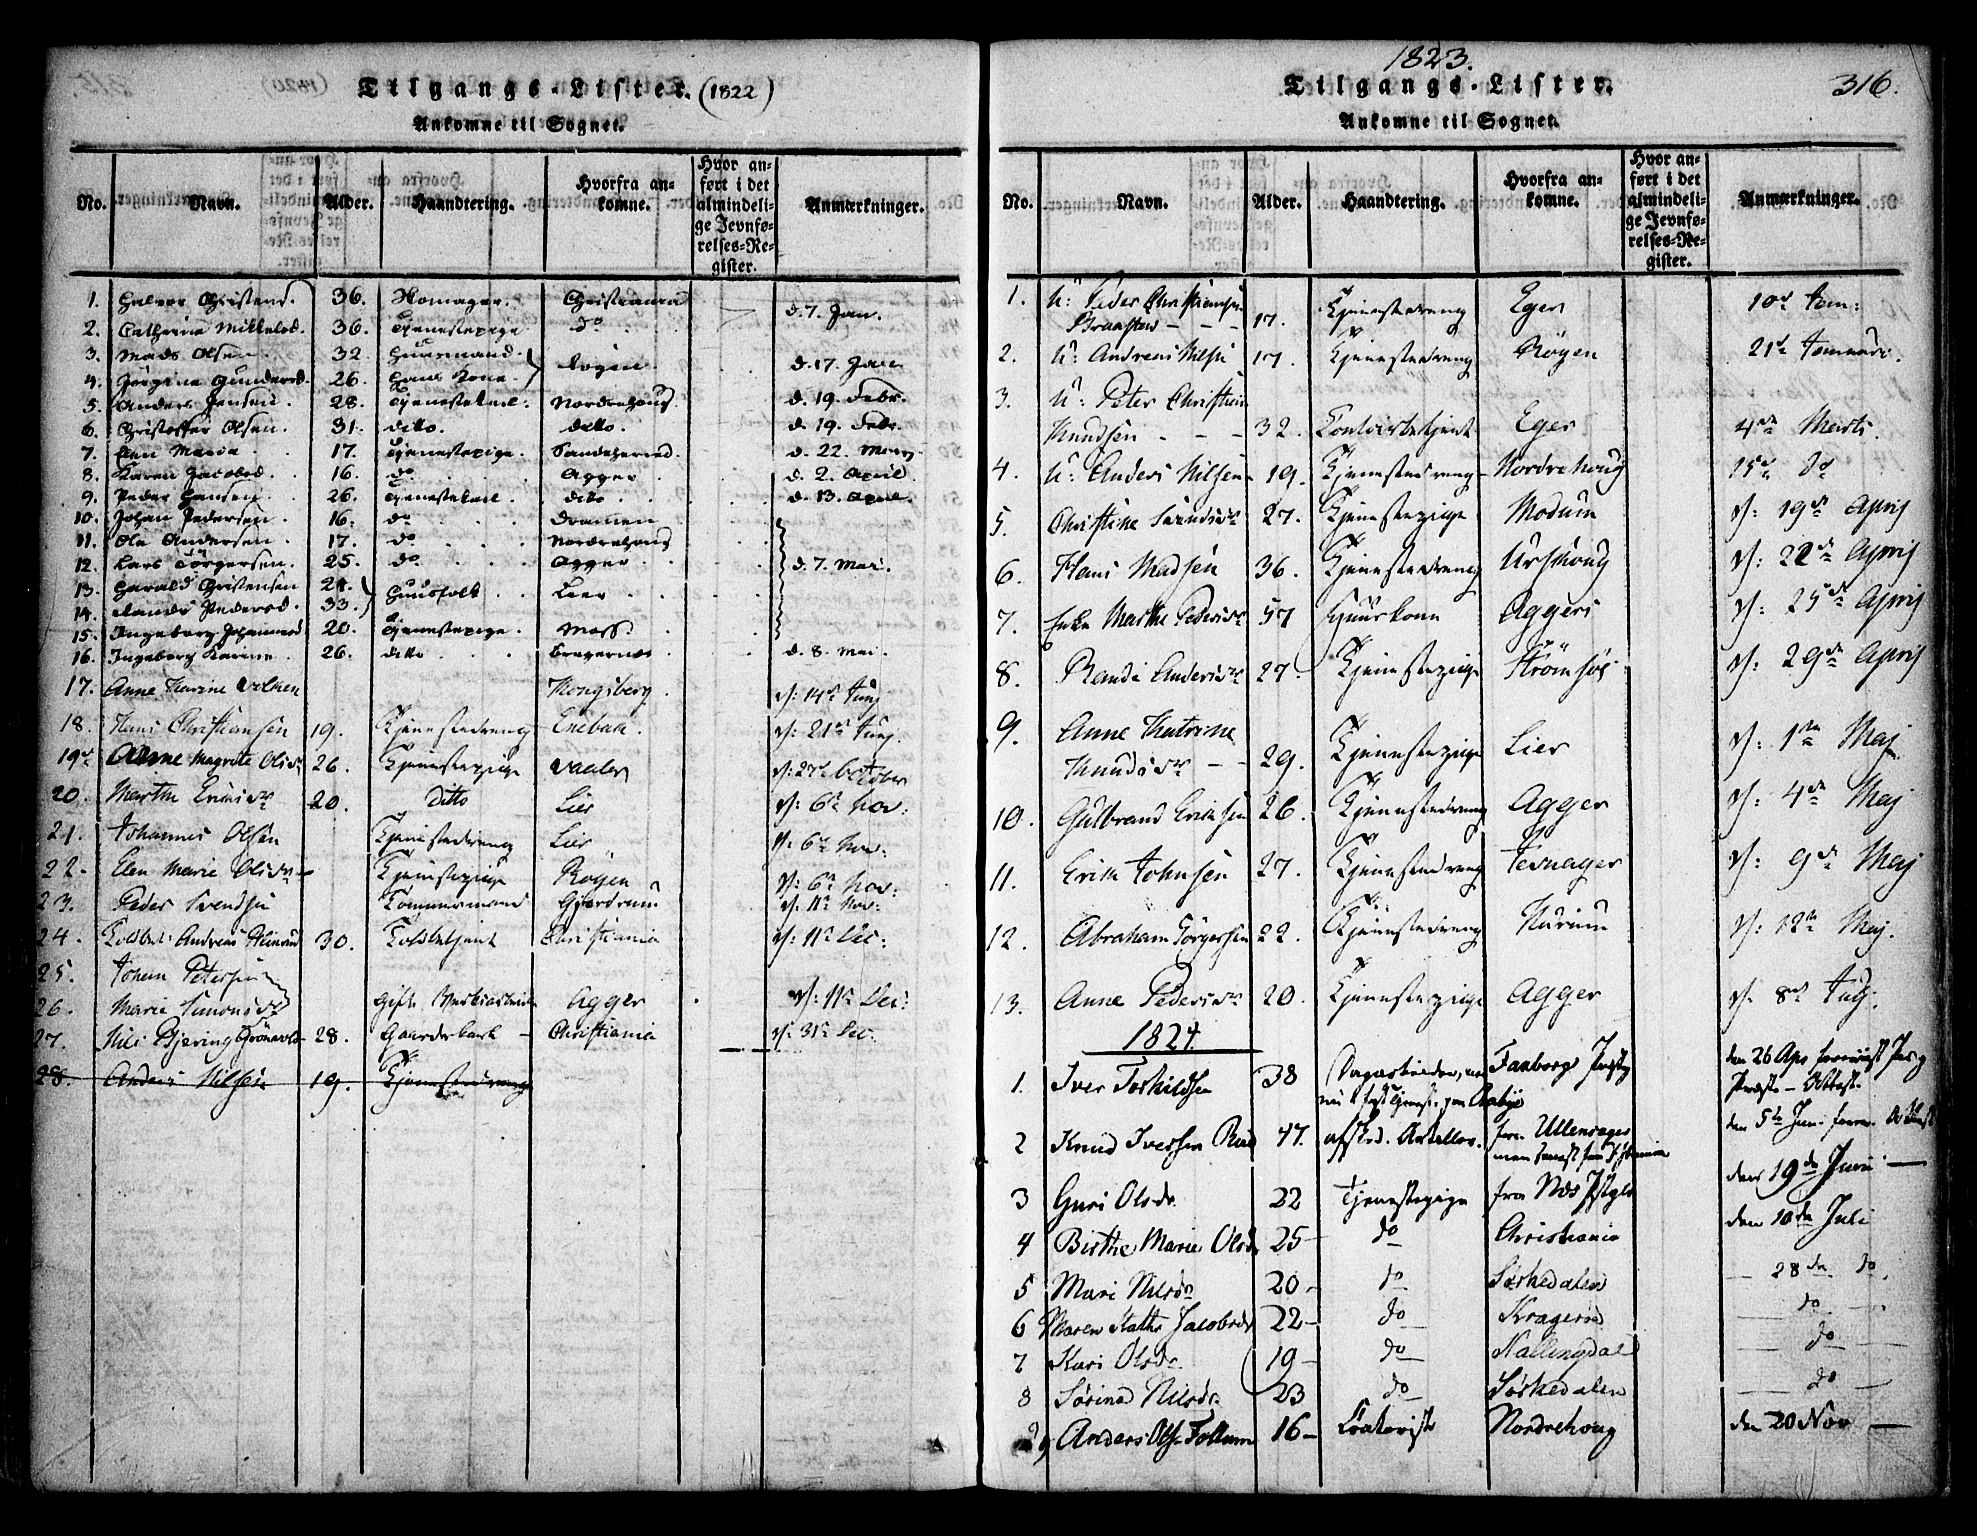 Tilgangs-Lister. (1822)
Ankomne til Sognet.
No. Navn. Alder. Haandtering. Hvorfra ankomne. Hvor anført i det almindelige Jevnførelses-Register. Anmærkninger.
1. Halvor Christens. 36. Christiania d. 7. Jan.
2. Cathrina Mikkelsd. 36. Tjenestepige do
3. Mads Olsen. 32. Huusmand. Røgen d. 17. Jan.
4. Jørgine Gundersd. 26. Hans Kone.
5. Anders Jensen. 28. Tjenestekarl. Nordrehoug. d. 19. Febr.
6. Christoffer Olsen. 31. ditto. ditto. d. 19. Febr.
7. Maria 17. Tjenestepige. d. 22. Marz
8. Karen Jacobsd. 16. do Agger d. 2. April
9. Peder Hansen. 26. Tjenestekarl. ditto. d. 13. April.
10. Johan Pedersen. 16. do Drammen
11. Ole Andersen. 17. do Nordrehoug
12. Lars Törgersen. 25. do. Agger d. 7. Mai.
13. Harald Christensen 24. Huusfolk Lier
14. Pedersd. 33.
15. Ingeborg Johannesd 20. Tjenestepige. Moss.
16. Ingeborg Karine 26. ditto. Bragernæs d. 8. Mai.
17. Anne Karine Kongsberg. d: 14de Junj
18. Hans Christiansen 19. Tjenestedreng Enebak. d: 21de Junj.
19de Anne Magrete Olsdr 26. Tjenestepige Vaaler d: 27de October
20. Marthe 20. Ditto Lier d: 6te Nov:
21. Johannes Olsen Tjenestedreng Lier d: 6te Nov:
22. Elen Marie Olsdr Tjenestepige Røgen d: 6te Nov:
23. Peder Svendsen Tømmermand Gjerdrum d: 11te Nov:
24. Toldbet: Andreas 30. Toldbetjent Christiania d: 11te Dec:
25. Johan Petersen
26. Marie Simonsdr gifte Agger d: 11te Dec:
27. Nils Bjering Grönvold 28. Christiania d: 31te Dec:
28. Anders Nilsen 19. Tjenestedreng
1823.
Tilgangs-Lister. 316.
Ankomne til Sognet.
No. Navn. Alder. Haandtering. Hvorfra ankomne. Hvor anført i det almindelige Jevnførelses-Register. Anmærkninger.
1. U: Peder Christiansen
Braasten - - - 17. Tjenestedreng Eger 10de Jan:
2. U: Andreas Nilsen 17. Tjenestedreng Röyen 21de Januari.
3. U: Peter Christian
Knudsen - - - 32. Contoirbetjent Eger 4de Marts.
4. U: Anders Nilsen 19. Tjenestedreng Nordrehoug 15de do
5. Christine 27. Tjenestepige Modum d: 19de April
6. Hans Madsen 36. Tjenestedreng Urskoug d: 22de April
7. Enke Marthe Pedersdr 57 Huuskone Aggers d: 25de April
8. Randi Andersdr 27. Tjenestepige Strömsöe d: 29de April
9. Anne Katrine
Knudsdr - - 29. Tjenestepige Lier d: 1ste Maj
10. Gulbrand Eriksen 26. Tjenestedreng Agger d: 4de Maj
11. Erik Johnsen 27. Tjenestedreng Jevnager d: 9de Maj
12. Abraham Törgersen 22. Tjenestedreng Hurum d: 12te Maj.
13. Anne Pedersdr 20. Tjenestepige Agger d: 8de Julj.
1824.
1. Iver Torkildsen 38 Faaborg den 26 Apr
Præste-Attest.
2 Knud Iversen Rud 47. afsked. Artiller. fra Ullensager den 5te Juni
3 Guri Olsdr. 22 Tjenestepige fra Næs den 19de Juni
4 Birthe Marie Olsdr 25- do Christiania den 10de Juli
5 Mari Nilsdr 20- do Sörkedalen - 28de do.
6 Maren Kathr Jacobsdr 22- do Krageröe do
7 Kari Olsdr. 19- do Hallingdal do
8 Sörine Nilsdr. 23 do Sörkedalen do
9 Anders Olsen Follum 16- Nordrehoug den 20 Nov